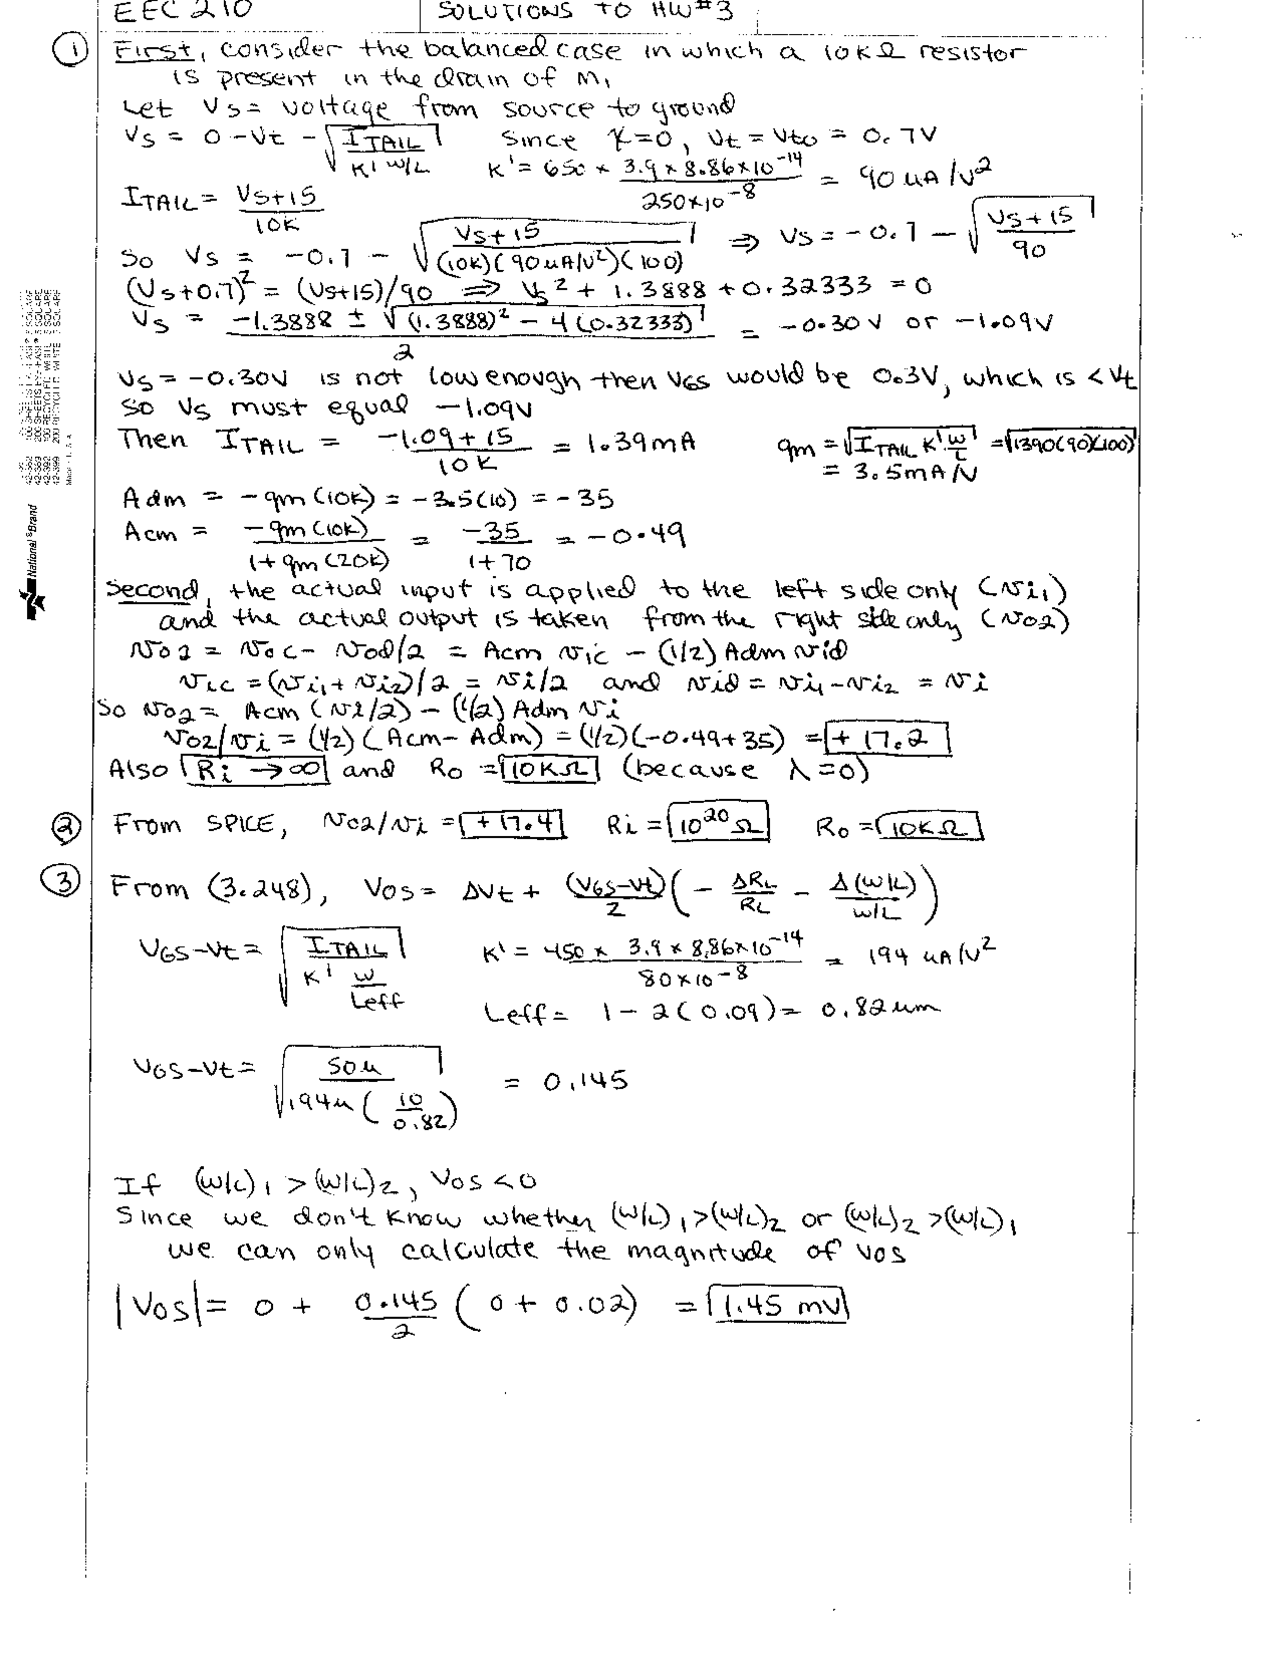 EEC 210 SOLUTIONS TO HW#3
① First, consider the balanced case in which a 10KΩ resistor
is present in the drain of M₁
Let Vs = voltage from source to ground
Vs = 0 - Vt - √(ITAIL / K' W/L) Since γ=0, Vt = Vto = 0.7V
K' = 650 × (3.9 × 8.86×10⁻¹⁴ / 250×10⁻⁸) = 90 uA/V²
ITAIL = (Vs+15) / 10K
So Vs = -0.7 - √((Vs+15) / (10K)(90uA/V²)(100)) ⇒ Vs = -0.7 - √((Vs+15) / 90)
(Vs+0.7)² = (Vs+15)/90 ⇒ Vs² + 1.3888 + 0.32333 = 0
Vs = (-1.3888 ± √((1.3888)² - 4(0.32333))) / 2 = -0.30V or -1.09V
Vs = -0.30V is not low enough then VGS would be 0.3V, which is < Vt
So Vs must equal -1.09V
Then ITAIL = (-1.09+15) / 10K = 1.39mA gm = √(ITAIL K' W/L) = √(1390(90)(100))
= 3.5mA/V
Adm = -gm(10K) = -3.5(10) = -35
Acm = -gm(10K) / (1+gm(20K)) = -35 / (1+70) = -0.49
Second, the actual input is applied to the left side only (vi1)
and the actual output is taken from the right side only (vo2)
vo2 = voc - vod/2 = Acm vic - (1/2) Adm vid
vic = (vi1 + vi2)/2 = vi/2 and vid = vi1 - vi2 = vi
So vo2 = Acm (vi/2) - (1/2) Adm vi
vo2/vi = (1/2)(Acm - Adm) = (1/2)(-0.49+35) = +17.2
Also Ri → ∞ and Ro = 10KΩ (because λ=0)
② From SPICE, vo2/vi = +17.4 Ri = 10²⁰ Ω Ro = 10KΩ
③ From (3.248), VOS = ΔVt + ((VGS-Vt) / 2)(- ΔRL/RL - Δ(W/L) / W/L)
VGS-Vt = √(ITAIL / K' W/Leff) K' = 450 × (3.9 × 8.86×10⁻¹⁴ / 80×10⁻⁸) = 194 uA/V²
Leff = 1 - 2(0.09) = 0.82um
VGS-Vt = √(50u / 194u (10/0.82)) = 0.145
If (W/L)₁ > (W/L)₂, VOS < 0
Since we don't know whether (W/L)₁ > (W/L)₂ or (W/L)₂ > (W/L)₁
we can only calculate the magnitude of VOS
|VOS| = 0 + (0.145 / 2)(0 + 0.02) = 1.45 mV
National ®Brand